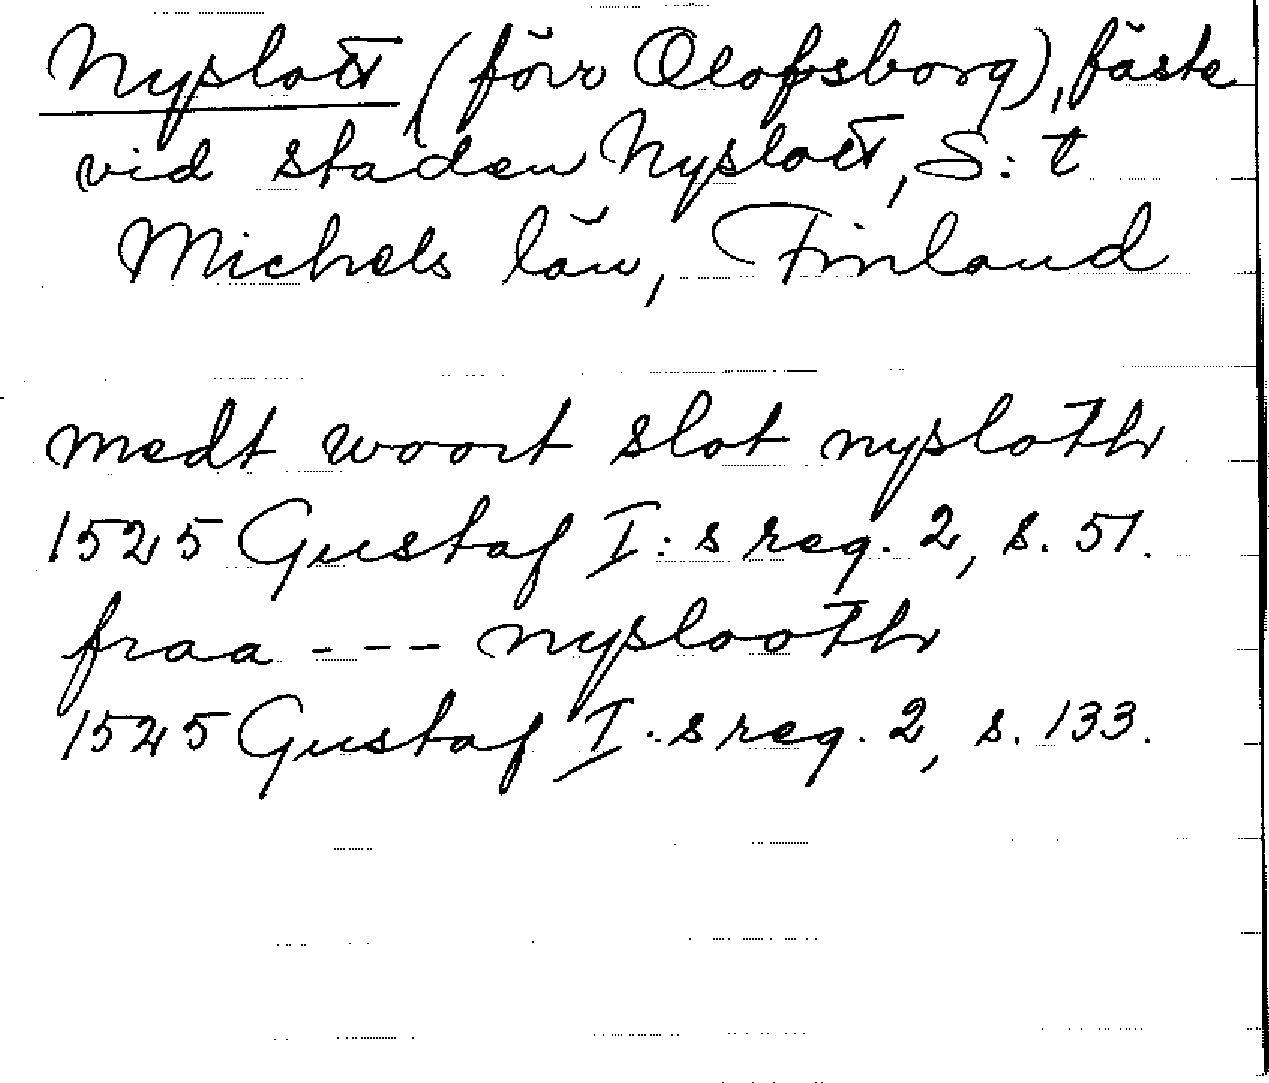 Nyslott (förr Olofsborg), fäste
vid staden Nyslott, S:t
Michels län, Finland
medt woort slot nyslothr
1525 Gustaf I:s reg. 2, s. 51.
fraa --- nyslothr
1525 Gustaf I:s reg. 2, s. 133.